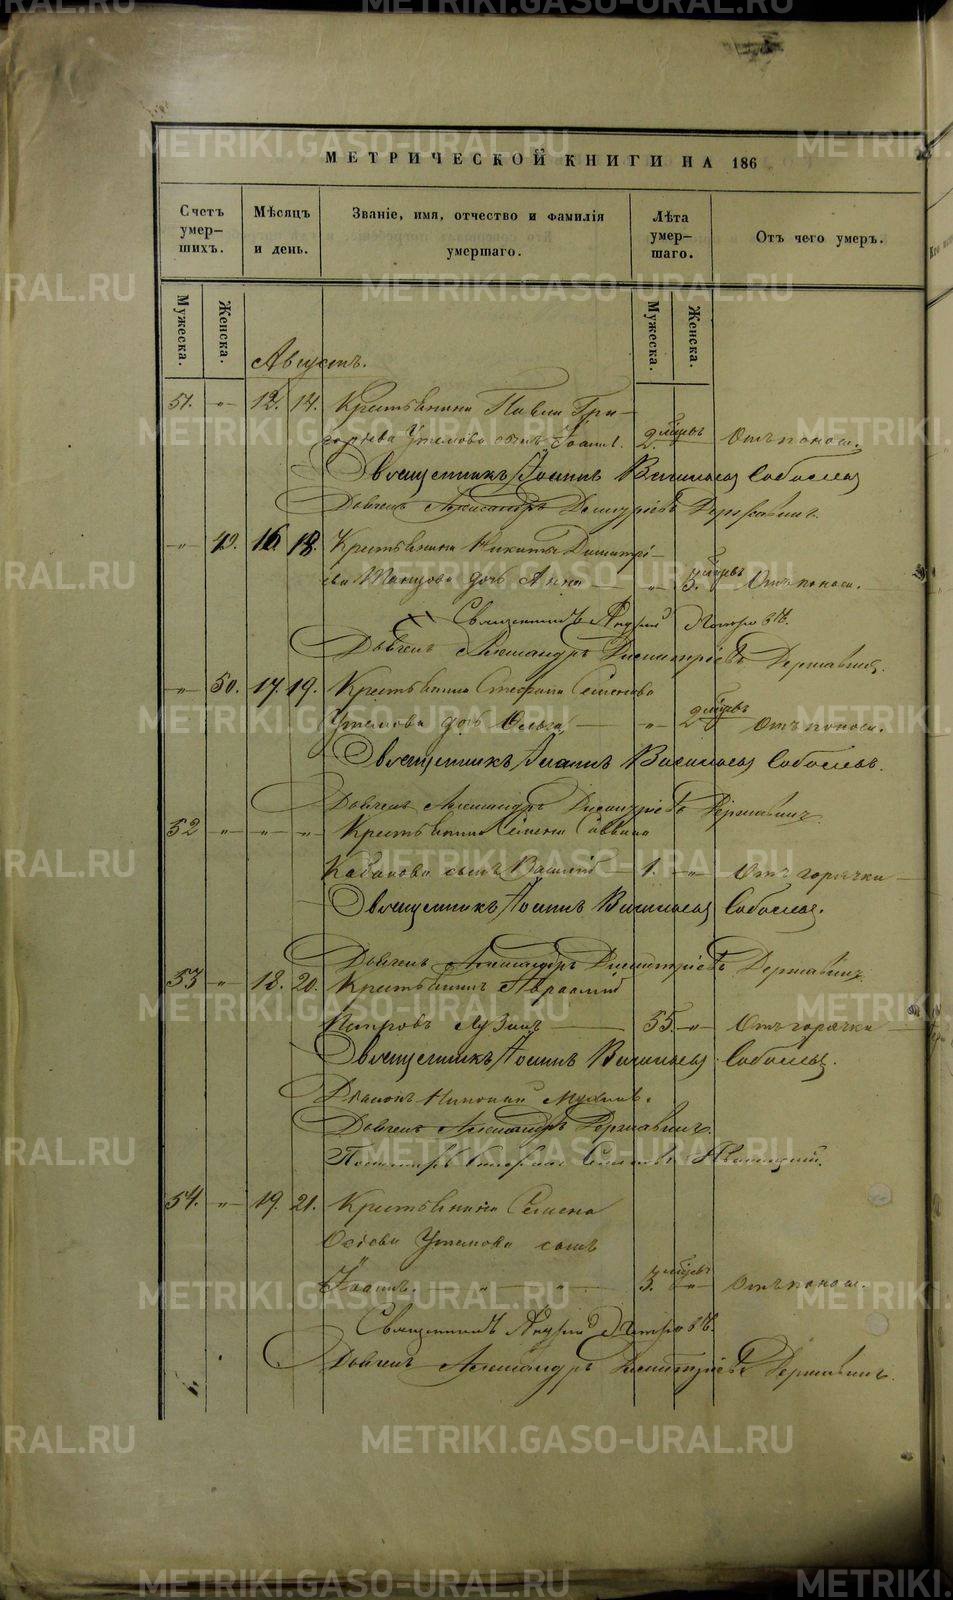 МЕТРИЧЕСКОЙ КНИГИ НА 186
Счетъ умер-шихъ.
Мѣсяцъ и день.
Званіе, имя, отчество и фамилія умершаго.
Лѣта умер-шаго.
Отъ чего умеръ.
Мужеска. Женска. Мужеска. Женска.
Августъ.
51. " 12. 14. Крестьянина Павла Гри-
горьева сынъ Іоаннъ. 2. мѣсяцъ Отъ поноса.
Священникъ Іоаннъ Васильевъ Соболевъ
Дьячекъ Александръ Димитріевъ Державинъ.
" 49. 16 18. Крестьянина Никиты Димитрі-
ева дочь Анна " 3. мѣсяцъ Отъ поноса.
Священникъ Андрей
Дьячекъ Александръ Димитріевъ Державинъ.
" 50. 17. 19. Крестьянина Стефана Семенова
дочь Ольга " 2 мѣсяцъ Отъ поноса.
Священникъ Іоаннъ Васильевъ Соболевъ.
Дьячекъ Александръ Димитріевъ Державинъ.
52 " " " Крестьянина Семена Саввина
Кабакова сынъ Василій 1. " Отъ горячки
Священникъ Іоаннъ Васильевъ Соболевъ.
Дьячекъ Александръ Димитріевъ Державинъ.
53 " 18. 20. Крестьянинъ Авраамій
Петровъ Лузинъ 55. " Отъ горячки
Священникъ Іоаннъ Васильевъ Соболевъ.
Діаконъ
Дьячекъ Александръ Державинъ.
Пономарь
54. " 19. 21. Крестьянина Семена
сынъ
Іоаннъ. " " 3. мѣсяцъ " Отъ поноса.
Священникъ Андрей
Дьячекъ Александръ Димитріевъ Державинъ.
METRIKI.GASO-URAL.RU